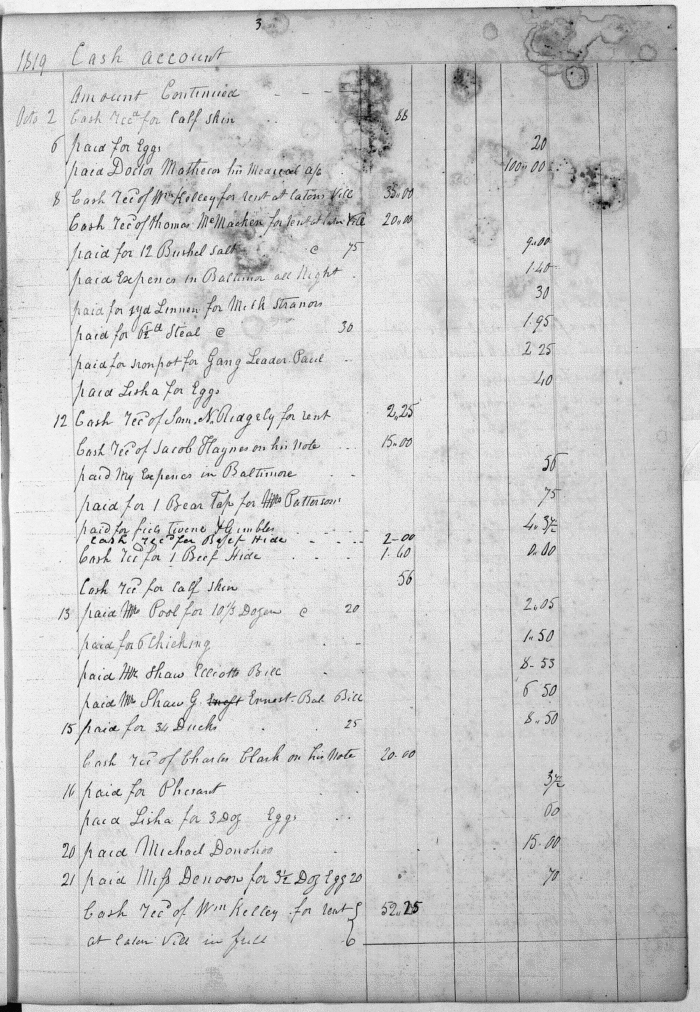 3
1819 Cash account
Amount Continued
Octo 2 Cash Recd for Calf skin 88
6 paid for Eggs 20
paid Doctor Mathews his Medical a/c 100"00
8 Cash Recd of Wm Kelley for rent at Caton Vill 35.00
Cash Recd of Thomas McMacken for rent at Vill 20.00
paid for 12 Bushel salt @ 75 9.00
paid Expences in Baltimor all Night 1.40
paid for yd Linnen for Milk Stranors 30
paid for 6½ lb Steal @ 30 1.95
paid for Ironpot for Gang Leader Paul 2.25
paid Lisha for Eggs 40
12 Cash Recd of Sam. N. Ridgely for rent 2.25
Cash Recd of Jacob Haynes on his Note 15.00
paid My Expences in Baltimore 56
paid for 1 Bear Tap for Patterson 75
paid for Twene & Gimbles 4.37½
Cash Recd for Beef Hide 2-00
Cash Recd for 1 Beef Hide 1.60 0.00
Cash Recd for Calf skin 56
13 paid Mr Pool for 10 1/3 Dozen @ 20 2.05
paid for 6 Chicking 1.50
paid Mr Shaw Elliotts Bill 8-53
paid Mr Shaw G. Ernest Bal Bill 6 50
15 paid for 34 Ducks 25 8.50
Cash Recd of Charles Clark on his Note 20.00
16 paid for Phesant 37½
paid Lisha for 3 Doz Eggs 60
20 paid Michael Donohoo 15.00
21 paid Miss Denoon for 3½ Doz Eggs 20 70
Cash Recd of Wm Kelley for rent 52.25
at Caton Vill in full